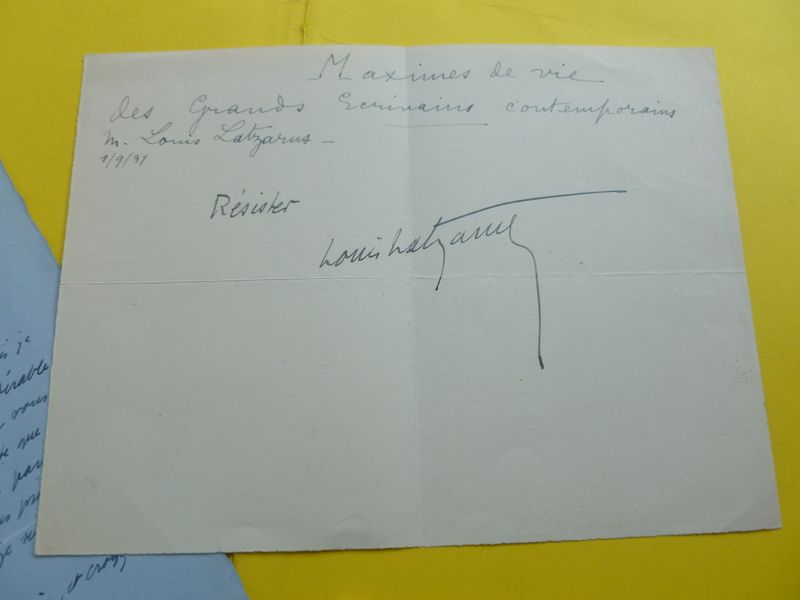 Maximes de vie
des Grands Ecrivains contemporains
M. Louis Latzarus -
1/9/31
Résister
Louis Latzarus
is je
érable
vous
que
par